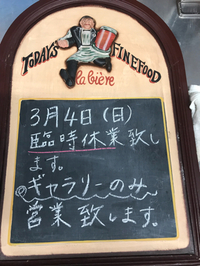 TODAY'S FINE FOOD
la bière
3月4日(日)
臨時休業致し
ます。
ギャラリーのみ
営業致します。